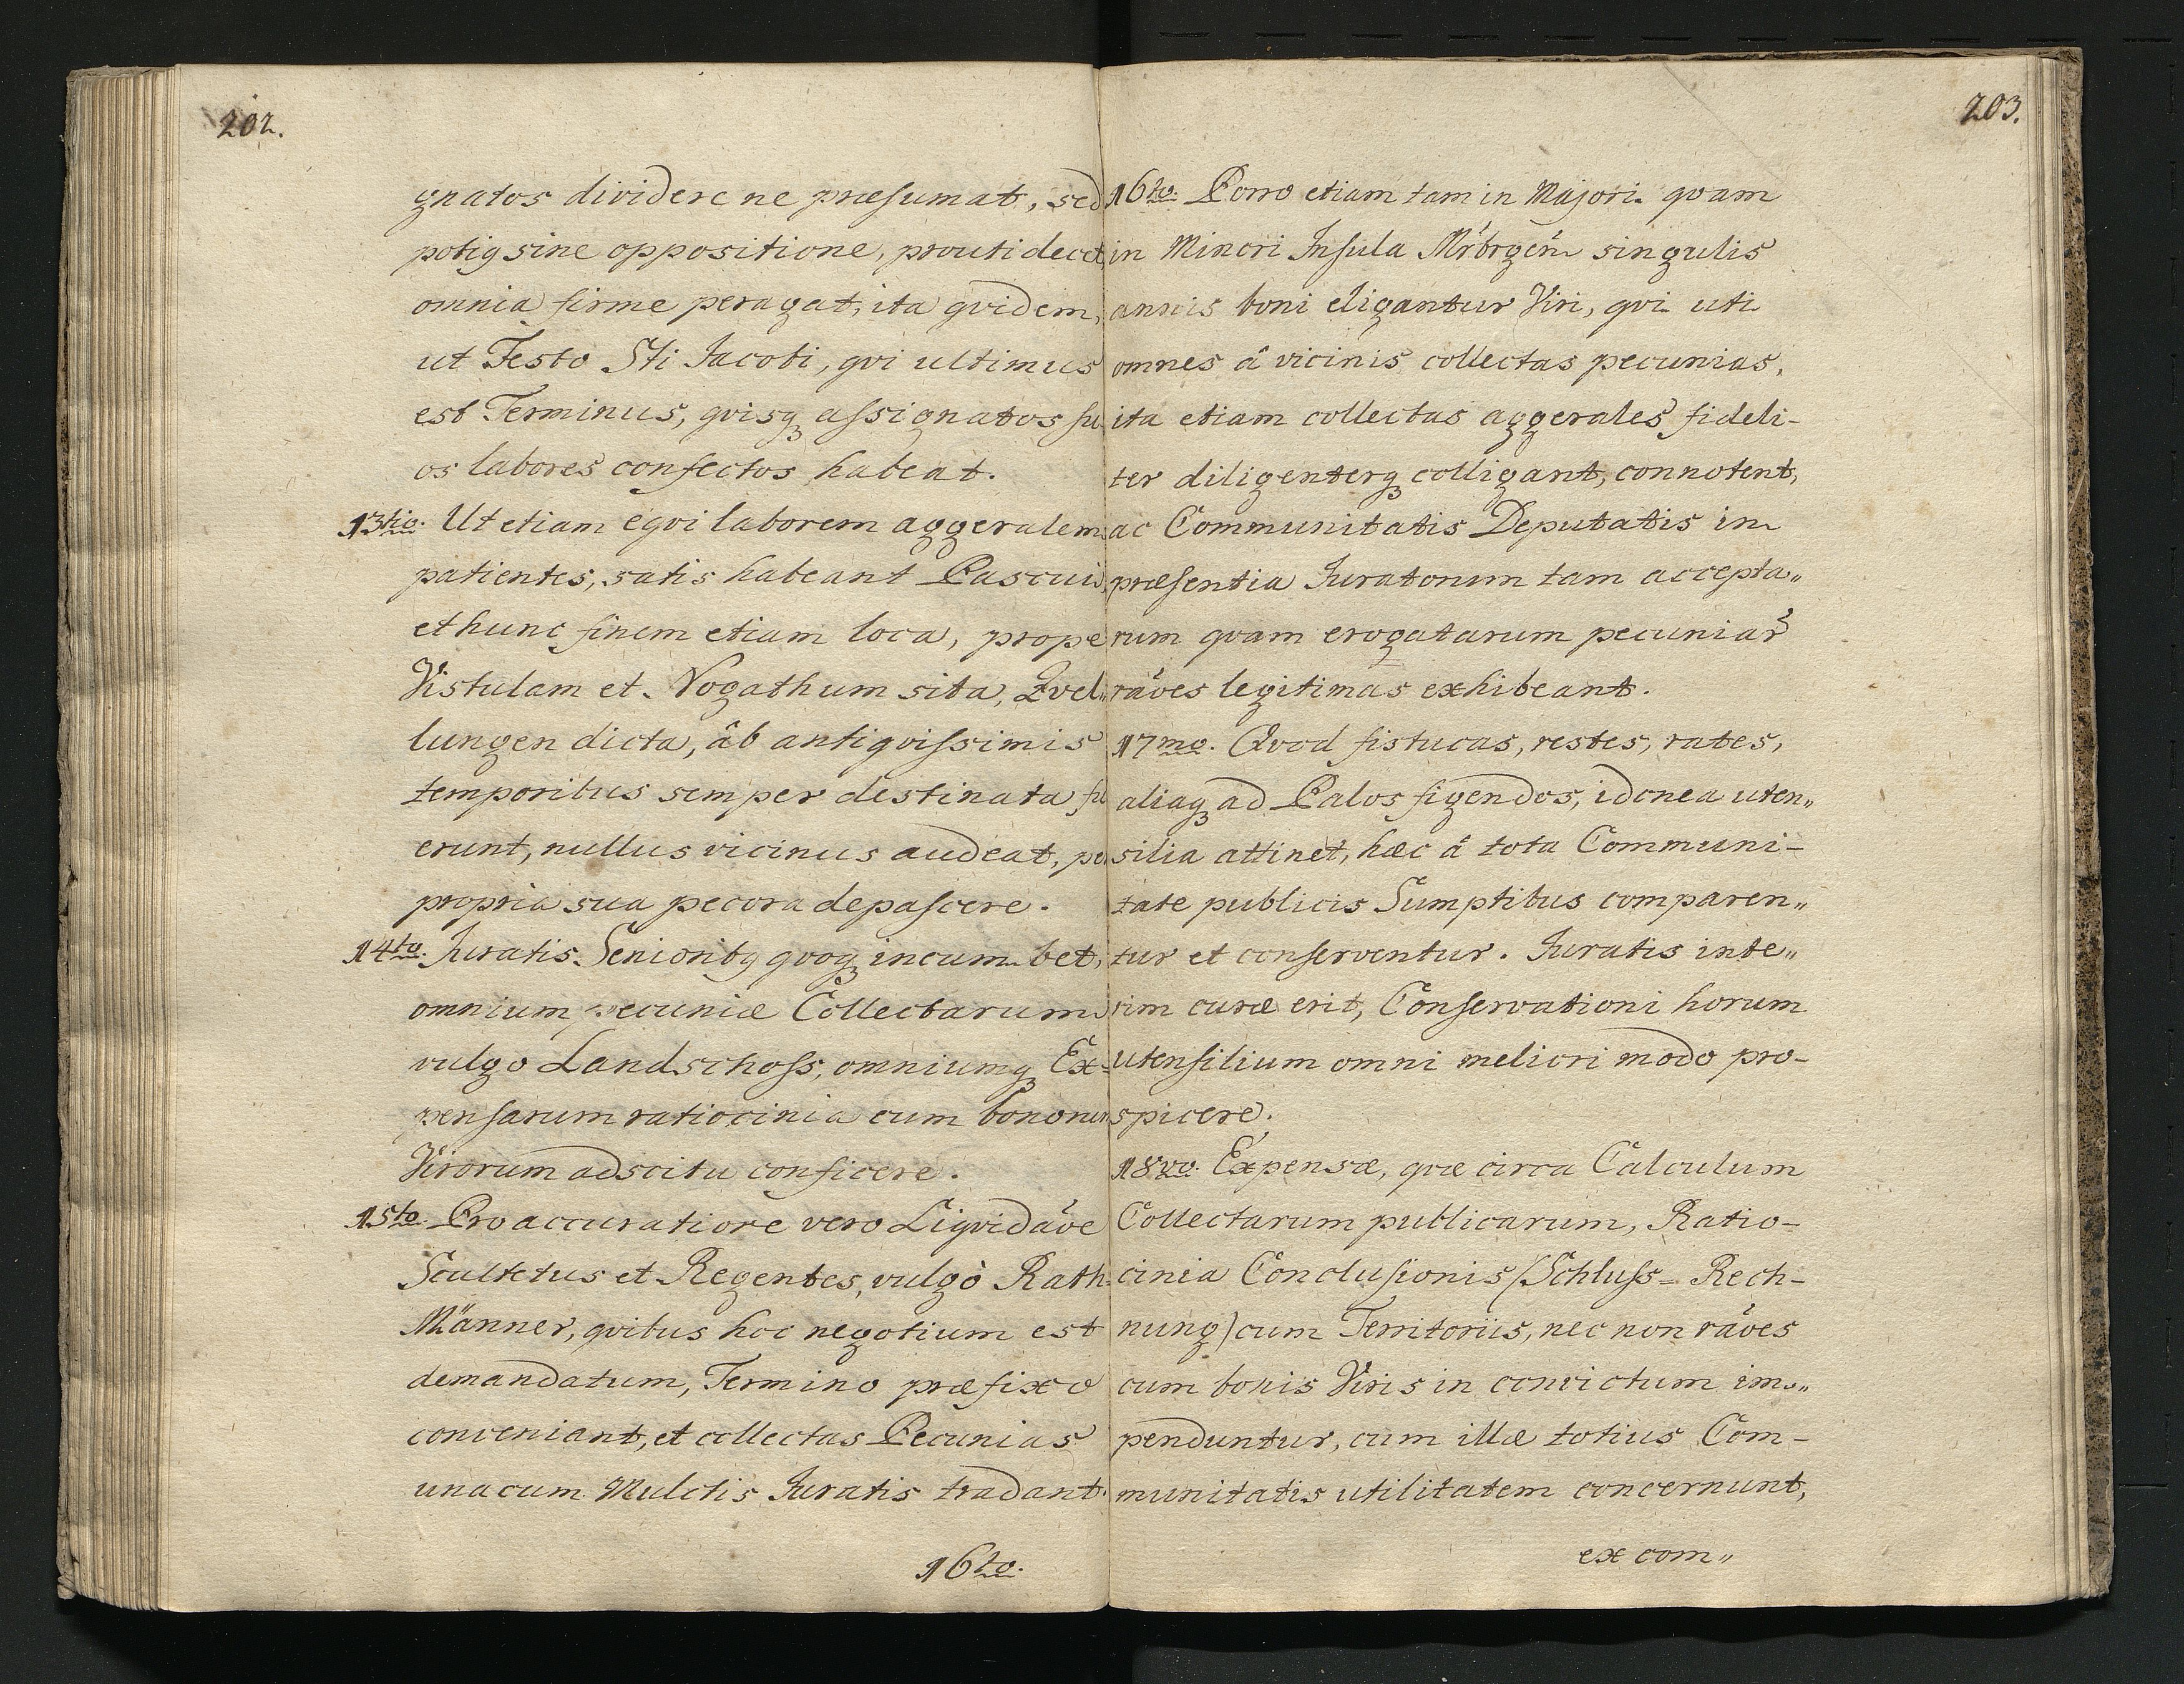 202.
gnatos dividere ne præsumat, sed
potiq sine oppositione, prouti decet,
omnia firme peragat, ita qvidem,
ut Festo Sti Jacobi, qvi ultimus
est Terminus, qvisq assignatos su
os labores confectos habeat.
13tio. Ut etiam eqvi laborem aggeralem
patientes, satis habeant Pascui,
et hunc finem etiam loca, prope
Vistulam et Nogathum sita, Qvel„
lungen dicta, âb antiqvissimis
temporibus semper destinata fu
erunt, nullus vicinus audeat, per
propria sua pecora depascere.
14to. Juratis Senioribq qvoq incumbet,
omnium pecuniæ Collectarum
vulgo Landschoss, omniumq Ex-
pensarum ratiocinia cum bonorum
Virorum adscitu conficere.
15to. Pro accuratiore vero Liqvidãoe
Scultetus et Regentes, vulgò Rath-
Männer, qvibus hoc negotium est
demandatum, Termino præfixo
conveniant, et collectas Pecunias
una cum Mulctis Juratis tradant.
16to.
203.
16to. Porro etiam tam in Majori qvam
in Minori Insula Mrbrgen singulis
annis boni eligantur Viri, qvi uti
omnes â vicinis collectas pecunias,
ita etiam collectas aggerales fideli-
ter diligenterq colligant, connotent,
ac Communitatis Deputatis in
præsentia Juratorum tam accepta„
rum qvam erogatarum pecuniar
rãoes legitimas exhibeant.
17mo. Qvod fistucas, restes, rates,
aliaq ad Palos figendos, idonea uten„
silia attinet, hæc â tota Communi-
tate publicis Sumptibus comparen„
tur et conserventur. Juratis inte„
rim curæ erit, Conservationi horum
utensilium omni meliori modo pro-
spicere.
18vo. Expensæ, qvæ circa Calculum
Collectarum publicarum, Ratio-
cinia Conclusionis (Schluss-Rech-
nung) cum Territoriis, nec non rãoes
cum bonis Viris in convictum im„
penduntur, cum illæ totius Com-
munitatis utilitatem concernunt,
ex com„